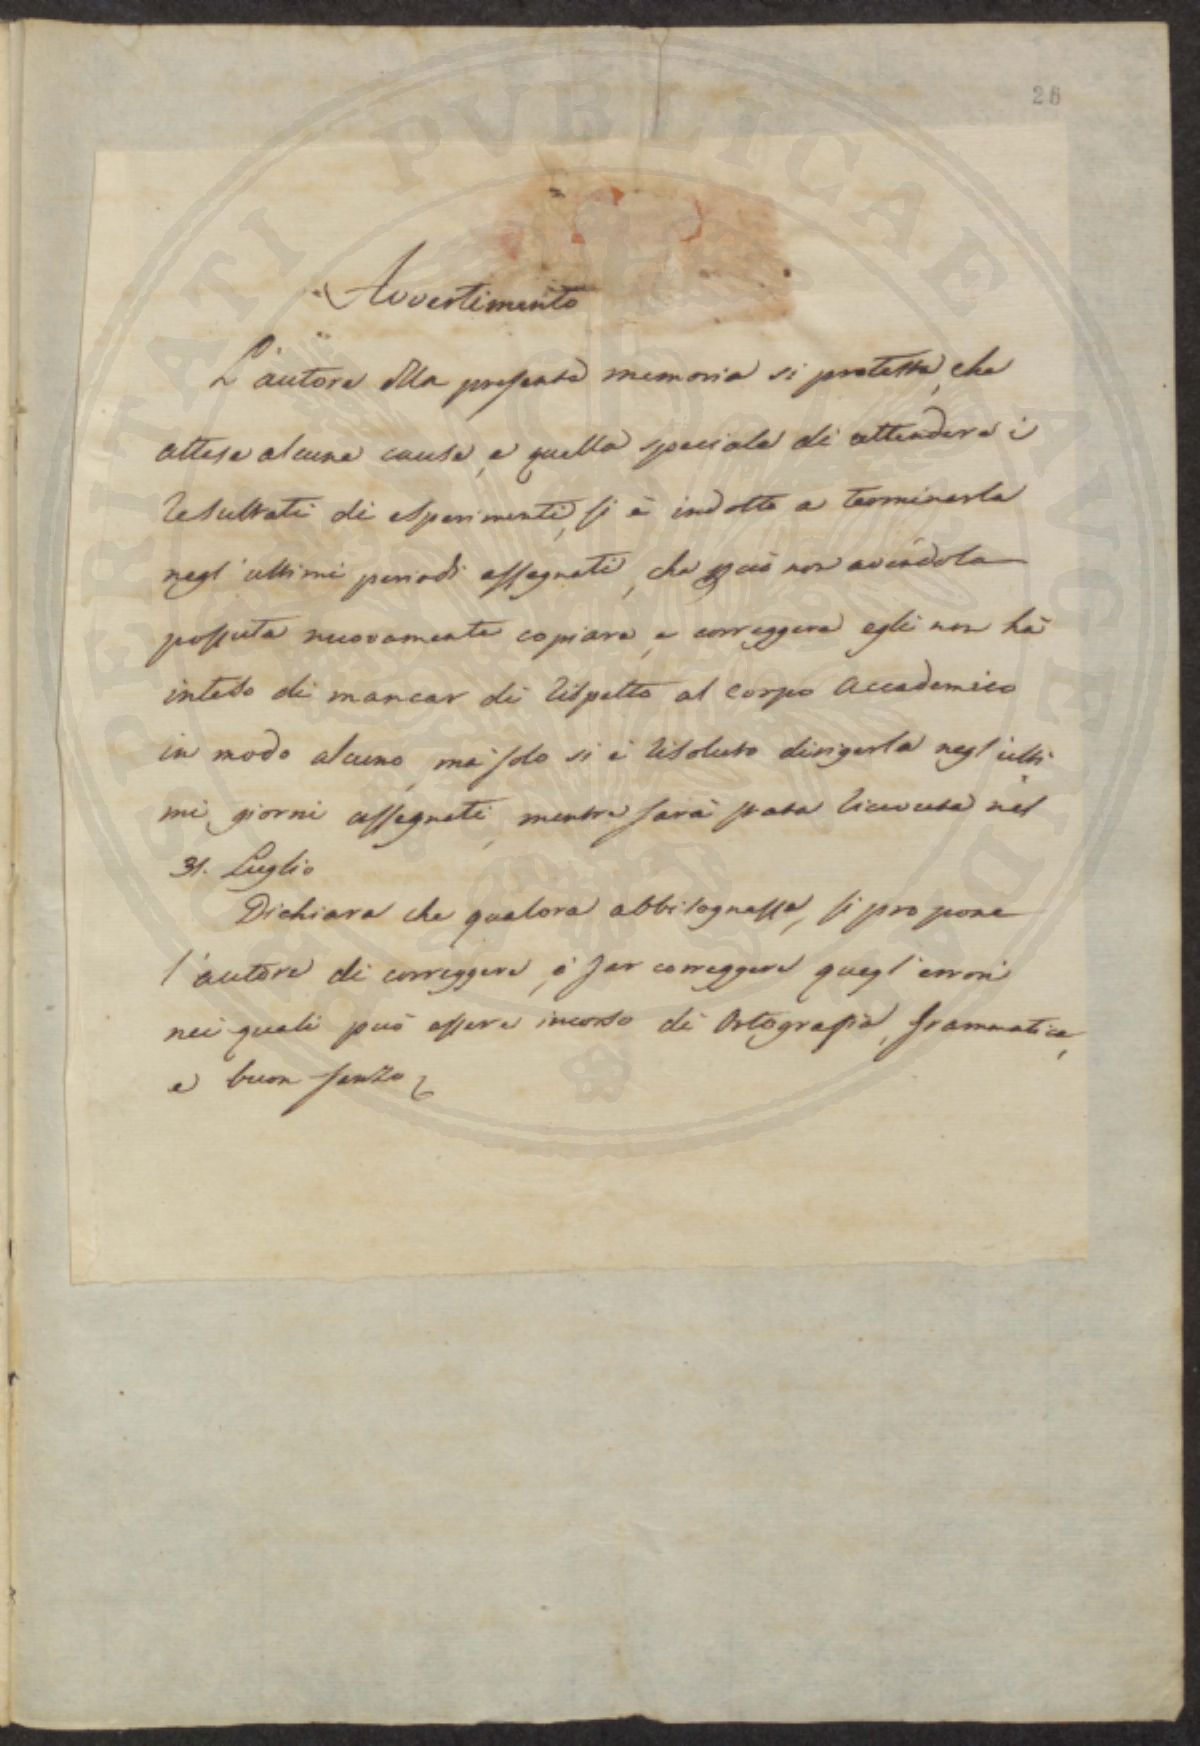 26
Avvertimento
L'autore della presente memoria si protesta, che
attese alcune cause, e quella speciale di attendere i
resultati di esperimenti, si è indotto a terminarla
negl'ultimi periodi assegnati, che perciò non avendola
possuta nuovamente copiare, e correggere egli non hà
inteso di mancar di rispetto al Corpo Accademico
in modo alcuno, mà solo si è risoluto dirigerla negl'ulti-
mi giorni assegnati, mentre sarà stata ricevuta nel
31. Luglio
Dichiara che qualora abbisognasse, si propone
l'autore di correggere, ò far correggere quegl'errori
nei quali può essere incorso di Ortografia, Grammatica,
e buon senso
PROSPERITATI PVBLICAE AVGENDAE